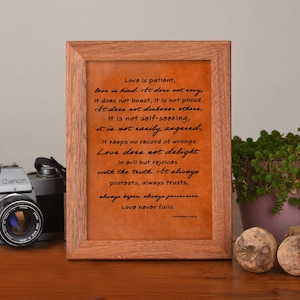 Love is patient,
love is kind. It does not envy,
it does not boast, it is not proud.
It does not dishonor others,
It is not self-seeking,
it is not easily angered,
It keeps no record of wrongs.
Love does not delight
in evil but rejoices
with the truth. It always
protects, always trusts,
always hopes, always perseveres.
Love never fails.
Canon